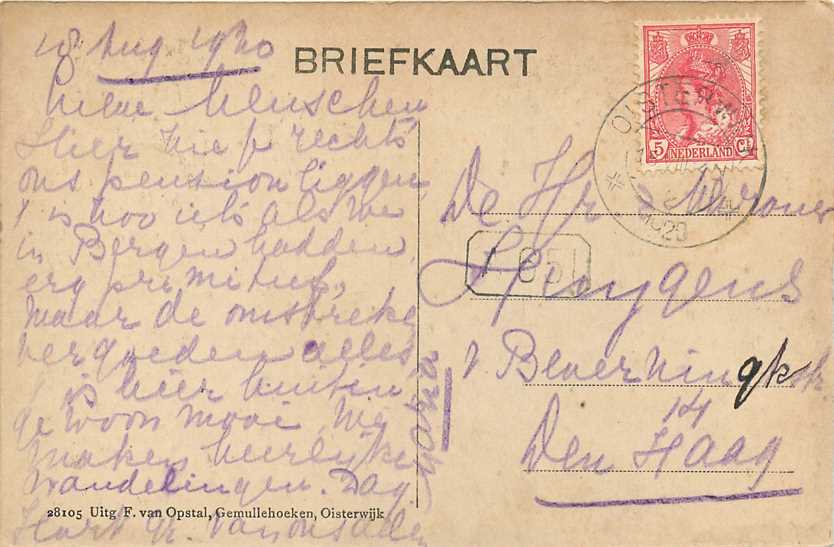 18 Aug. 1920
Lieve Menschen
Hier zie je rechts
ons pension liggen,
't is zoo iets als we
in Bergen hadden,
erg primitief,
maar de omstreke
vergoeden alles
't is hier buiten
gewoon mooi. We
maken heerlijke
wandelingen. Dag
Hart. gr. van ons allen
BRIEFKAART
5 Ct NEDERLAND
OISTERWIJK
1920
De Hr & Mevrouw
Huygens
v Beverningkstr
14
Den Haag
28105 Uitg F. van Opstal, Gemullehoeken, Oisterwijk